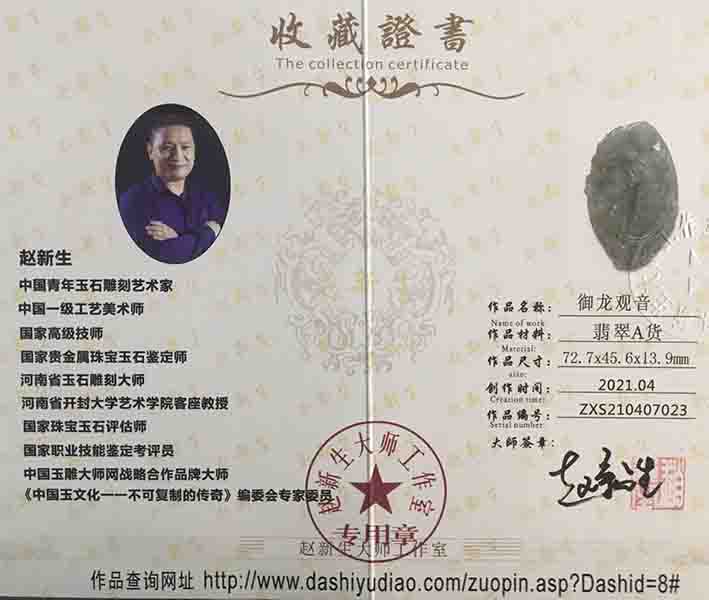 收藏證書
The collection certificate
赵新生
中国青年玉石雕刻艺术家
中国一级工艺美术师
国家高级技师
国家贵金属珠宝玉石鉴定师
河南省玉石雕刻大师
河南省开封大学艺术学院客座教授
国家珠宝玉石评估师
国家职业技能鉴定考评员
中国玉雕大师网战略合作品牌大师
《中国玉文化一一不可复制的传奇》编委会专家委员
作品名称: 御龙观音
Name of work
作品材料: 翡翠A货
Material:
作品尺寸: 72.7x45.6x13.9mm
size:
创作时间: 2021.04
Creation time:
作品编号: ZXS210407023
Serial number
大师签章:
赵新生
赵新生大师工作室
专用章
赵新生大师工作室
作品查询网址 http://www.dashiyudiao.com/zuopin.asp?Dashid=8#